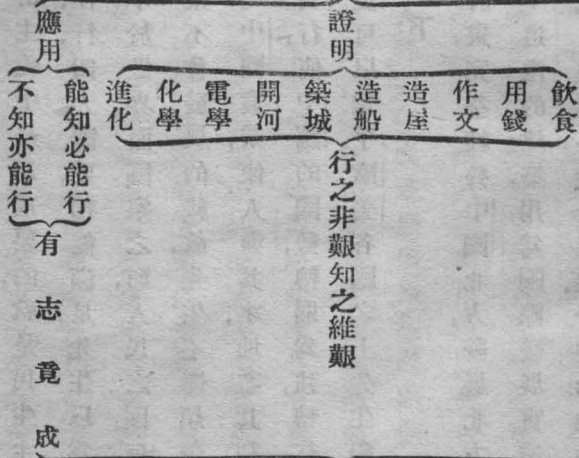 證明
飲食
用錢
作文
造屋
造船
築城
開河
電學
化學
進化
行之非艱知之維艱
應用
能知必能行
不知亦能行
有志竟成